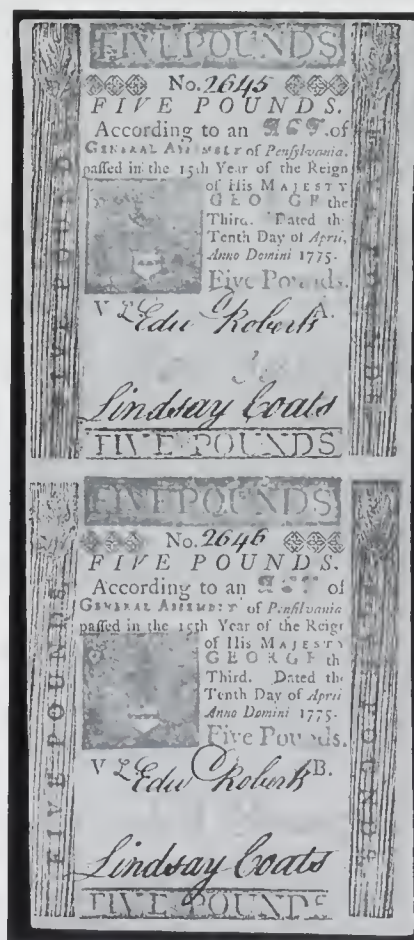 FIVE POUNDS
No. 2645
FIVE POUNDS.
According to an ACT of
GENERAL ASSEMBLY of Penſylvania,
paſſed in the 15th Year of the Reign
of His MAJESTY
GEORGE the
Third. Dated th
Tenth Day of April,
Anno Domini 1775.
Five Pounds.
V £ A.
Edw Roberts
Lindsay Coats
FIVE POUNDS
FIVE POUNDS
FIVE POUNDS
No. 2646
FIVE POUNDS.
According to an ACT of
GENERAL ASSEMBLY of Penſilvania
paſſed in the 15th Year of the Reign
of His MAJESTY
GEORGE th
Third. Dated the
Tenth Day of April
Anno Domini 1775.
Five Pounds.
V £ B.
Edw Roberts
Lindsay Coats
FIVE POUNDS
FIVE POUNDS
FIVE POUNDS